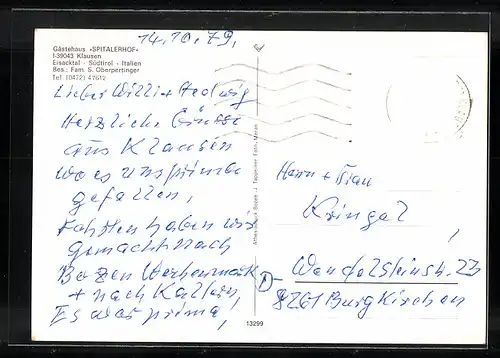 Gästehaus «SPITALERHOF»
I-39043 Klausen
Eisacktal - Südtirol - Italien
Bes.: Fam. S. Oberpertinger
Tel. (0472) 47612
14.10.79,
Lieber Willi + Hedwig
Herzliche Grüsse
aus Klausen
wo es uns prima
gefallen,
Fahrten haben wir
gemacht nach
Bozen
+ nach Kaltern,
Es war prima,
Herrn + Frau
Kringel,
Wendelsteinstr. 23
D-
8261 Burgkirchen
13299